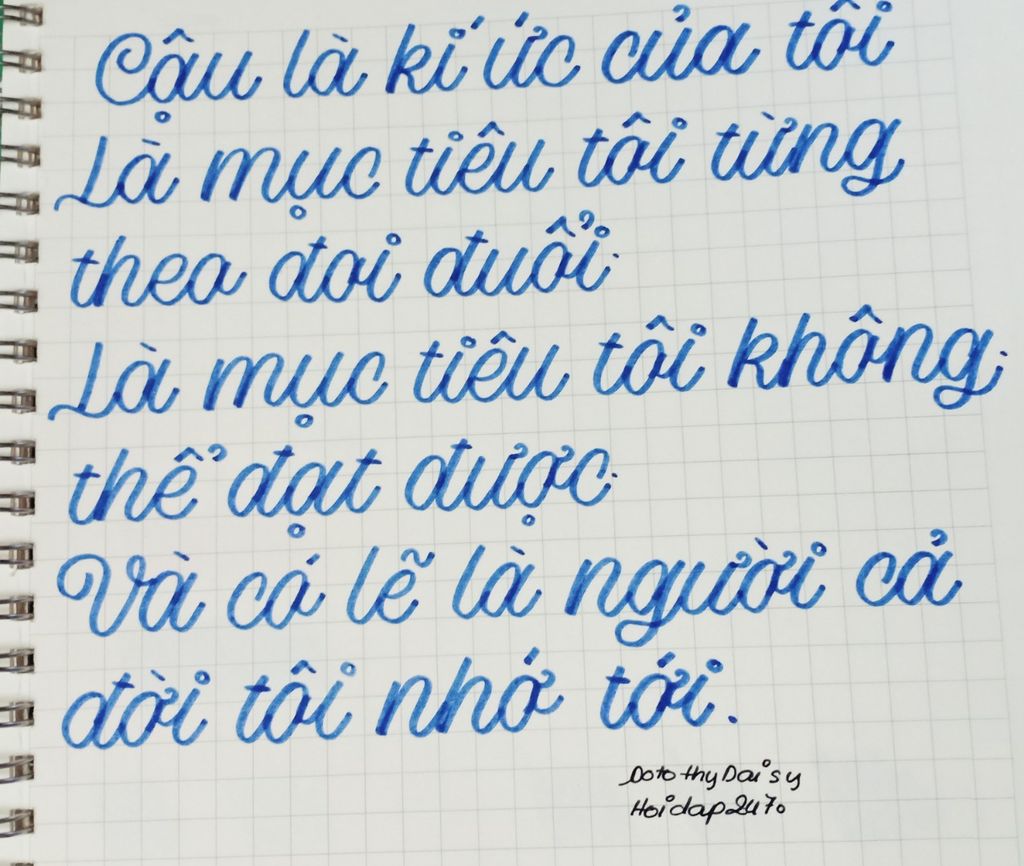 Cậu là kí ức của tôi
Là mục tiêu tôi từng
theo đoi đuổi.
Là mục tiêu tôi không
thể đạt được.
Và có lẽ là người cả
đời tôi nhớ tới.
DotothyDaisy
Hoidap247.